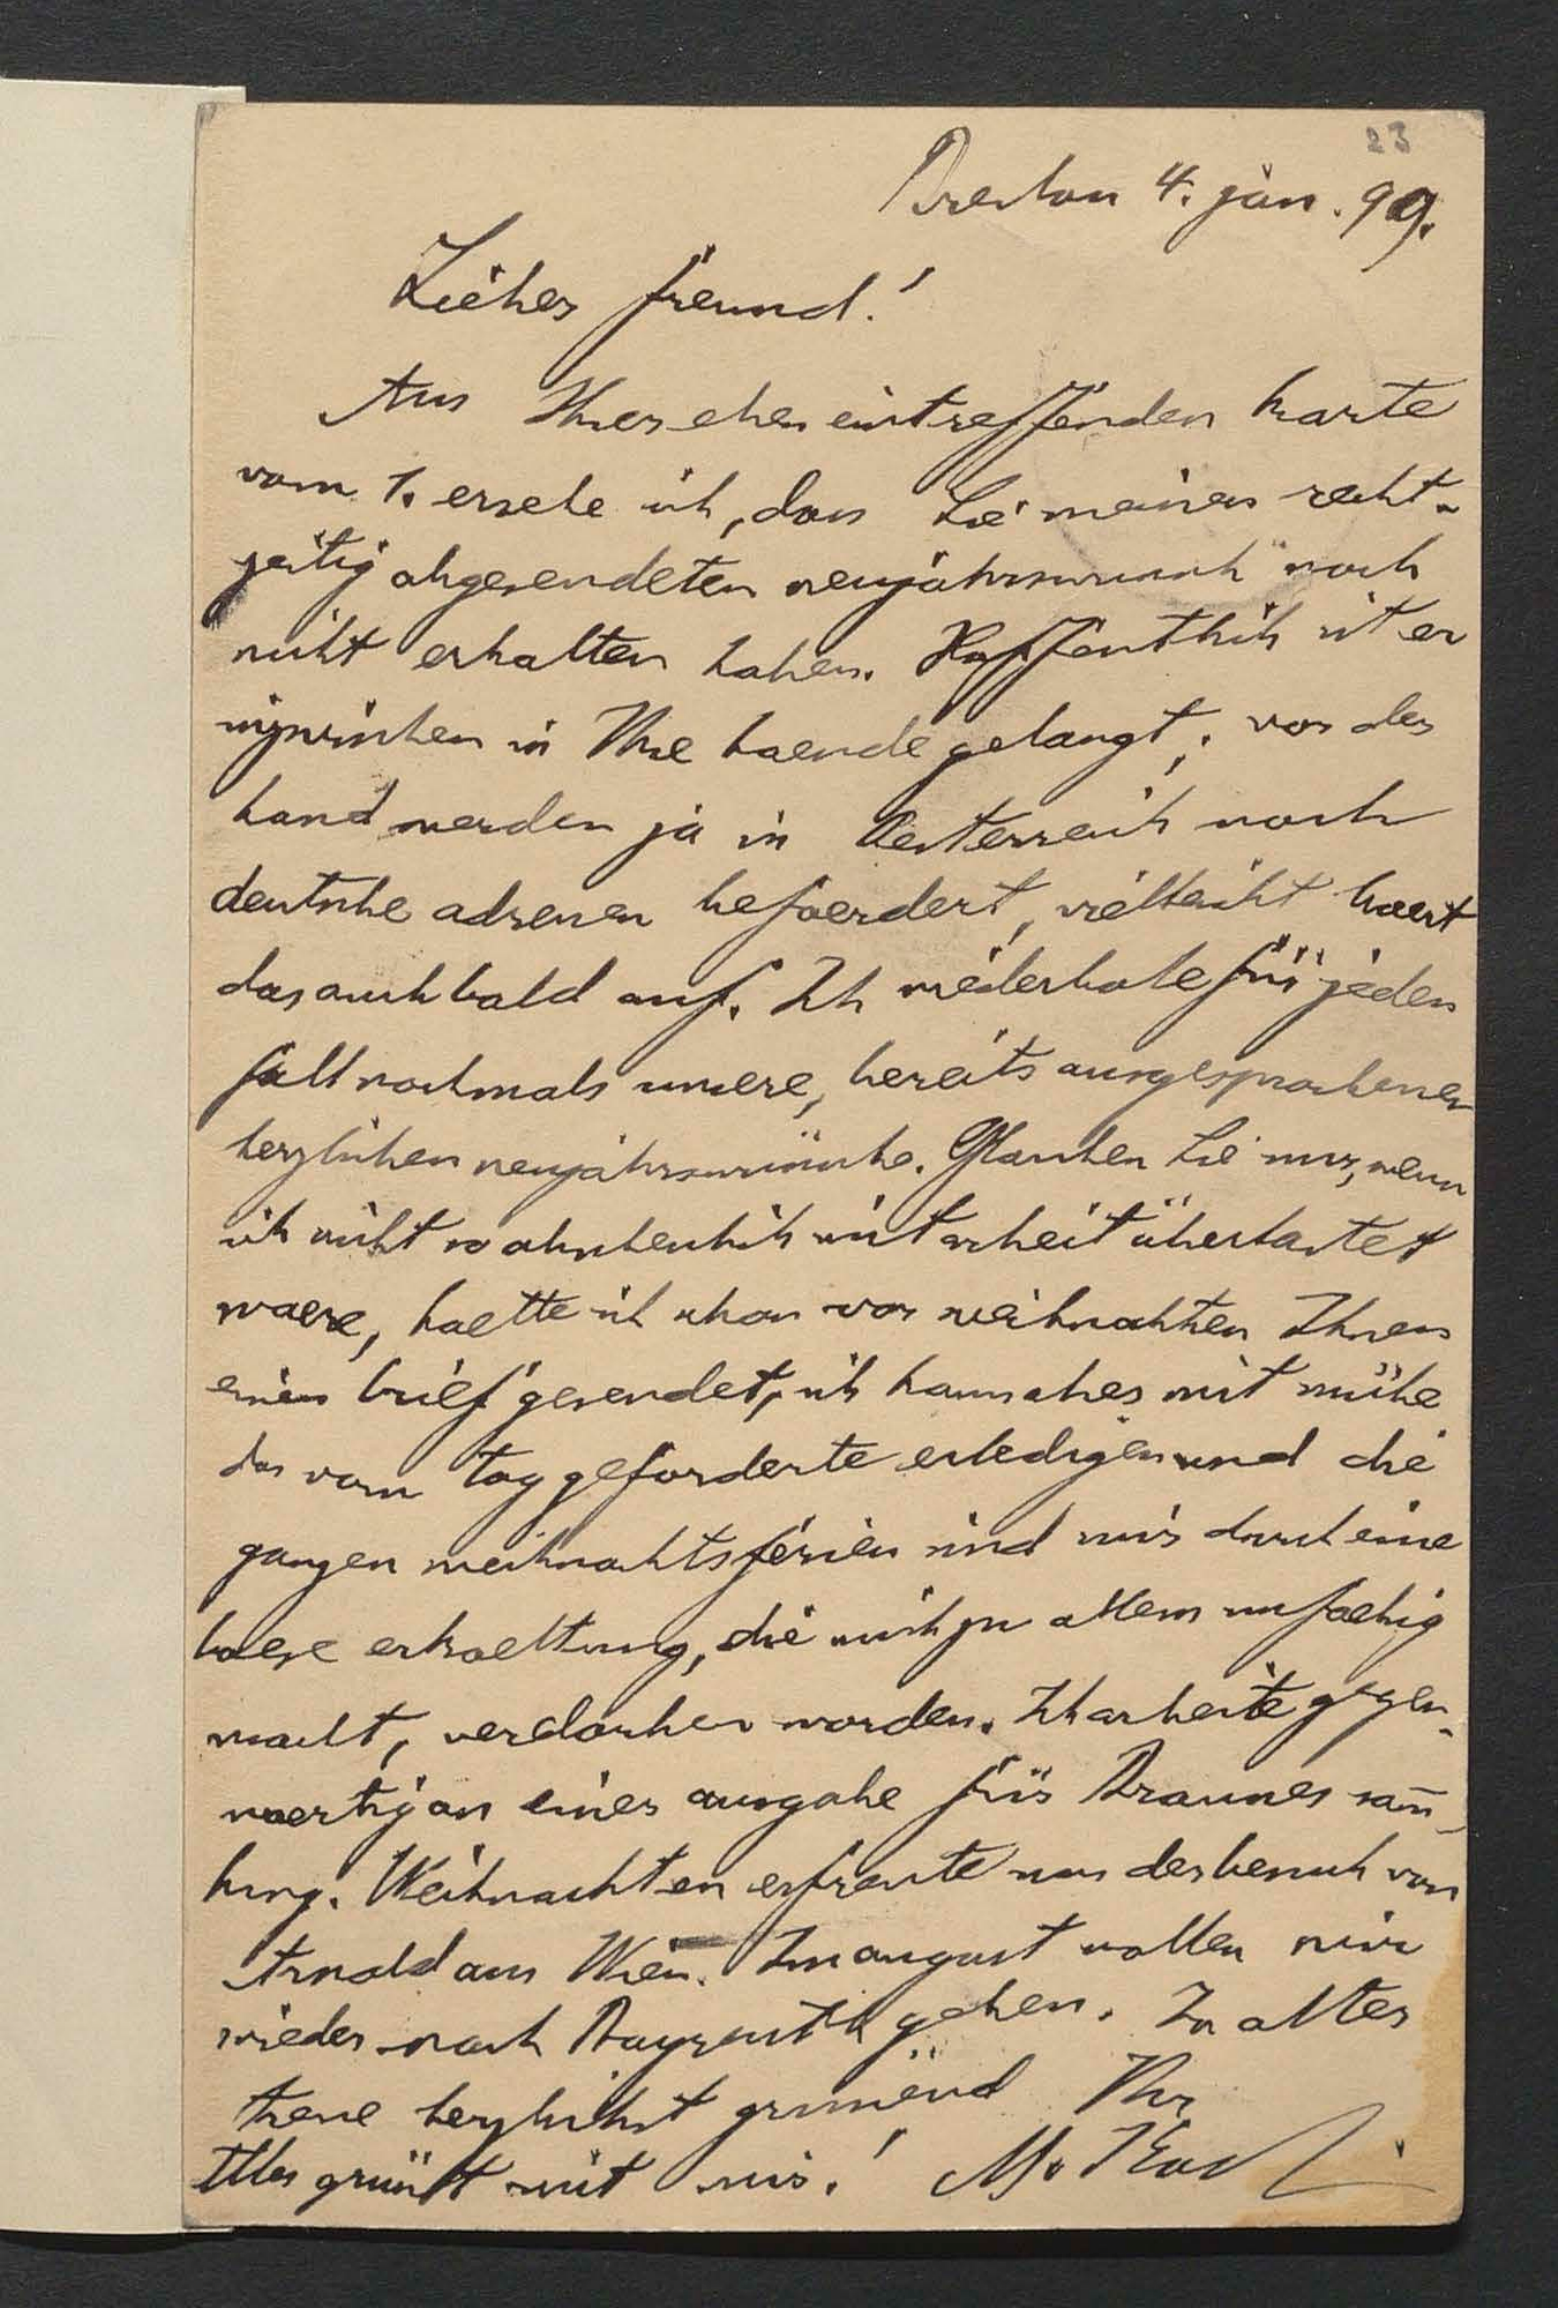 23
Breslau 4. jan. 99.
Lieber freund!
Aus Ihrer eben eintreffenden karte
vom 1. ersehe ich, dass Sie meinen recht-
zeitig abgesendeten neujahrswunsch noch
nicht erhalten haben. Hoffentlich ist er
inzwischen in Ihre haende gelangt; vor der
hand werden ja in Oesterreich noch
deutsche adressen befoerdert, vielleicht hoert
das auch bald auf. Ich wiederhole für jeden
fall nochmals unsere, bereits ausgesprochenen
herzlichen neujahrswünsche. Glauben Sie mir, wenn
ich nicht so abscheulich mit arbeit überlastet
waere, haette ich schon vor weihnachten Ihnen
einen brief gesendet, ich kann aber mit mühe
das vom tag geforderte erledigen und die
ganzen weihnachtsferien sind mir durch eine
boese erkaeltung, die mich zu allem unfaehig
macht, verdorben worden. Ich arbeite gegen-
waertig an einer ausgabe für Braunes sam̅-
lung. Weihnachten erfreute uns der besuch von
Arnold aus Wien. Im august wollen wir
wieder nach Bayreuth gehen. In alter
treue herzlichst grüssend Ihr
Alles grüsst mit mir! M. Koch